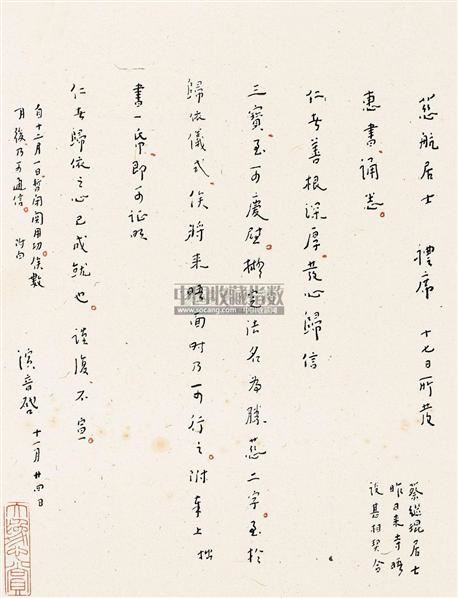 慈航居士 禮席 十七日所發
惠書誦悉。
仁者善根深厚。發心歸信
三寶。至可慶慰。擬定法名為勝慈二字。至於
歸依儀式。俟將來晤面時乃可行之。附奉上拙
書一紙。即可証明
仁者歸依之心已成就也。謹復。不宣。
演音啓 十一月廿四日
自十二月一日暫閉關用功。俟數
月後乃可通信。附白
蔡繼琨居士
昨日來寺晤
談甚相契合
中国收藏指数
www.socang.com